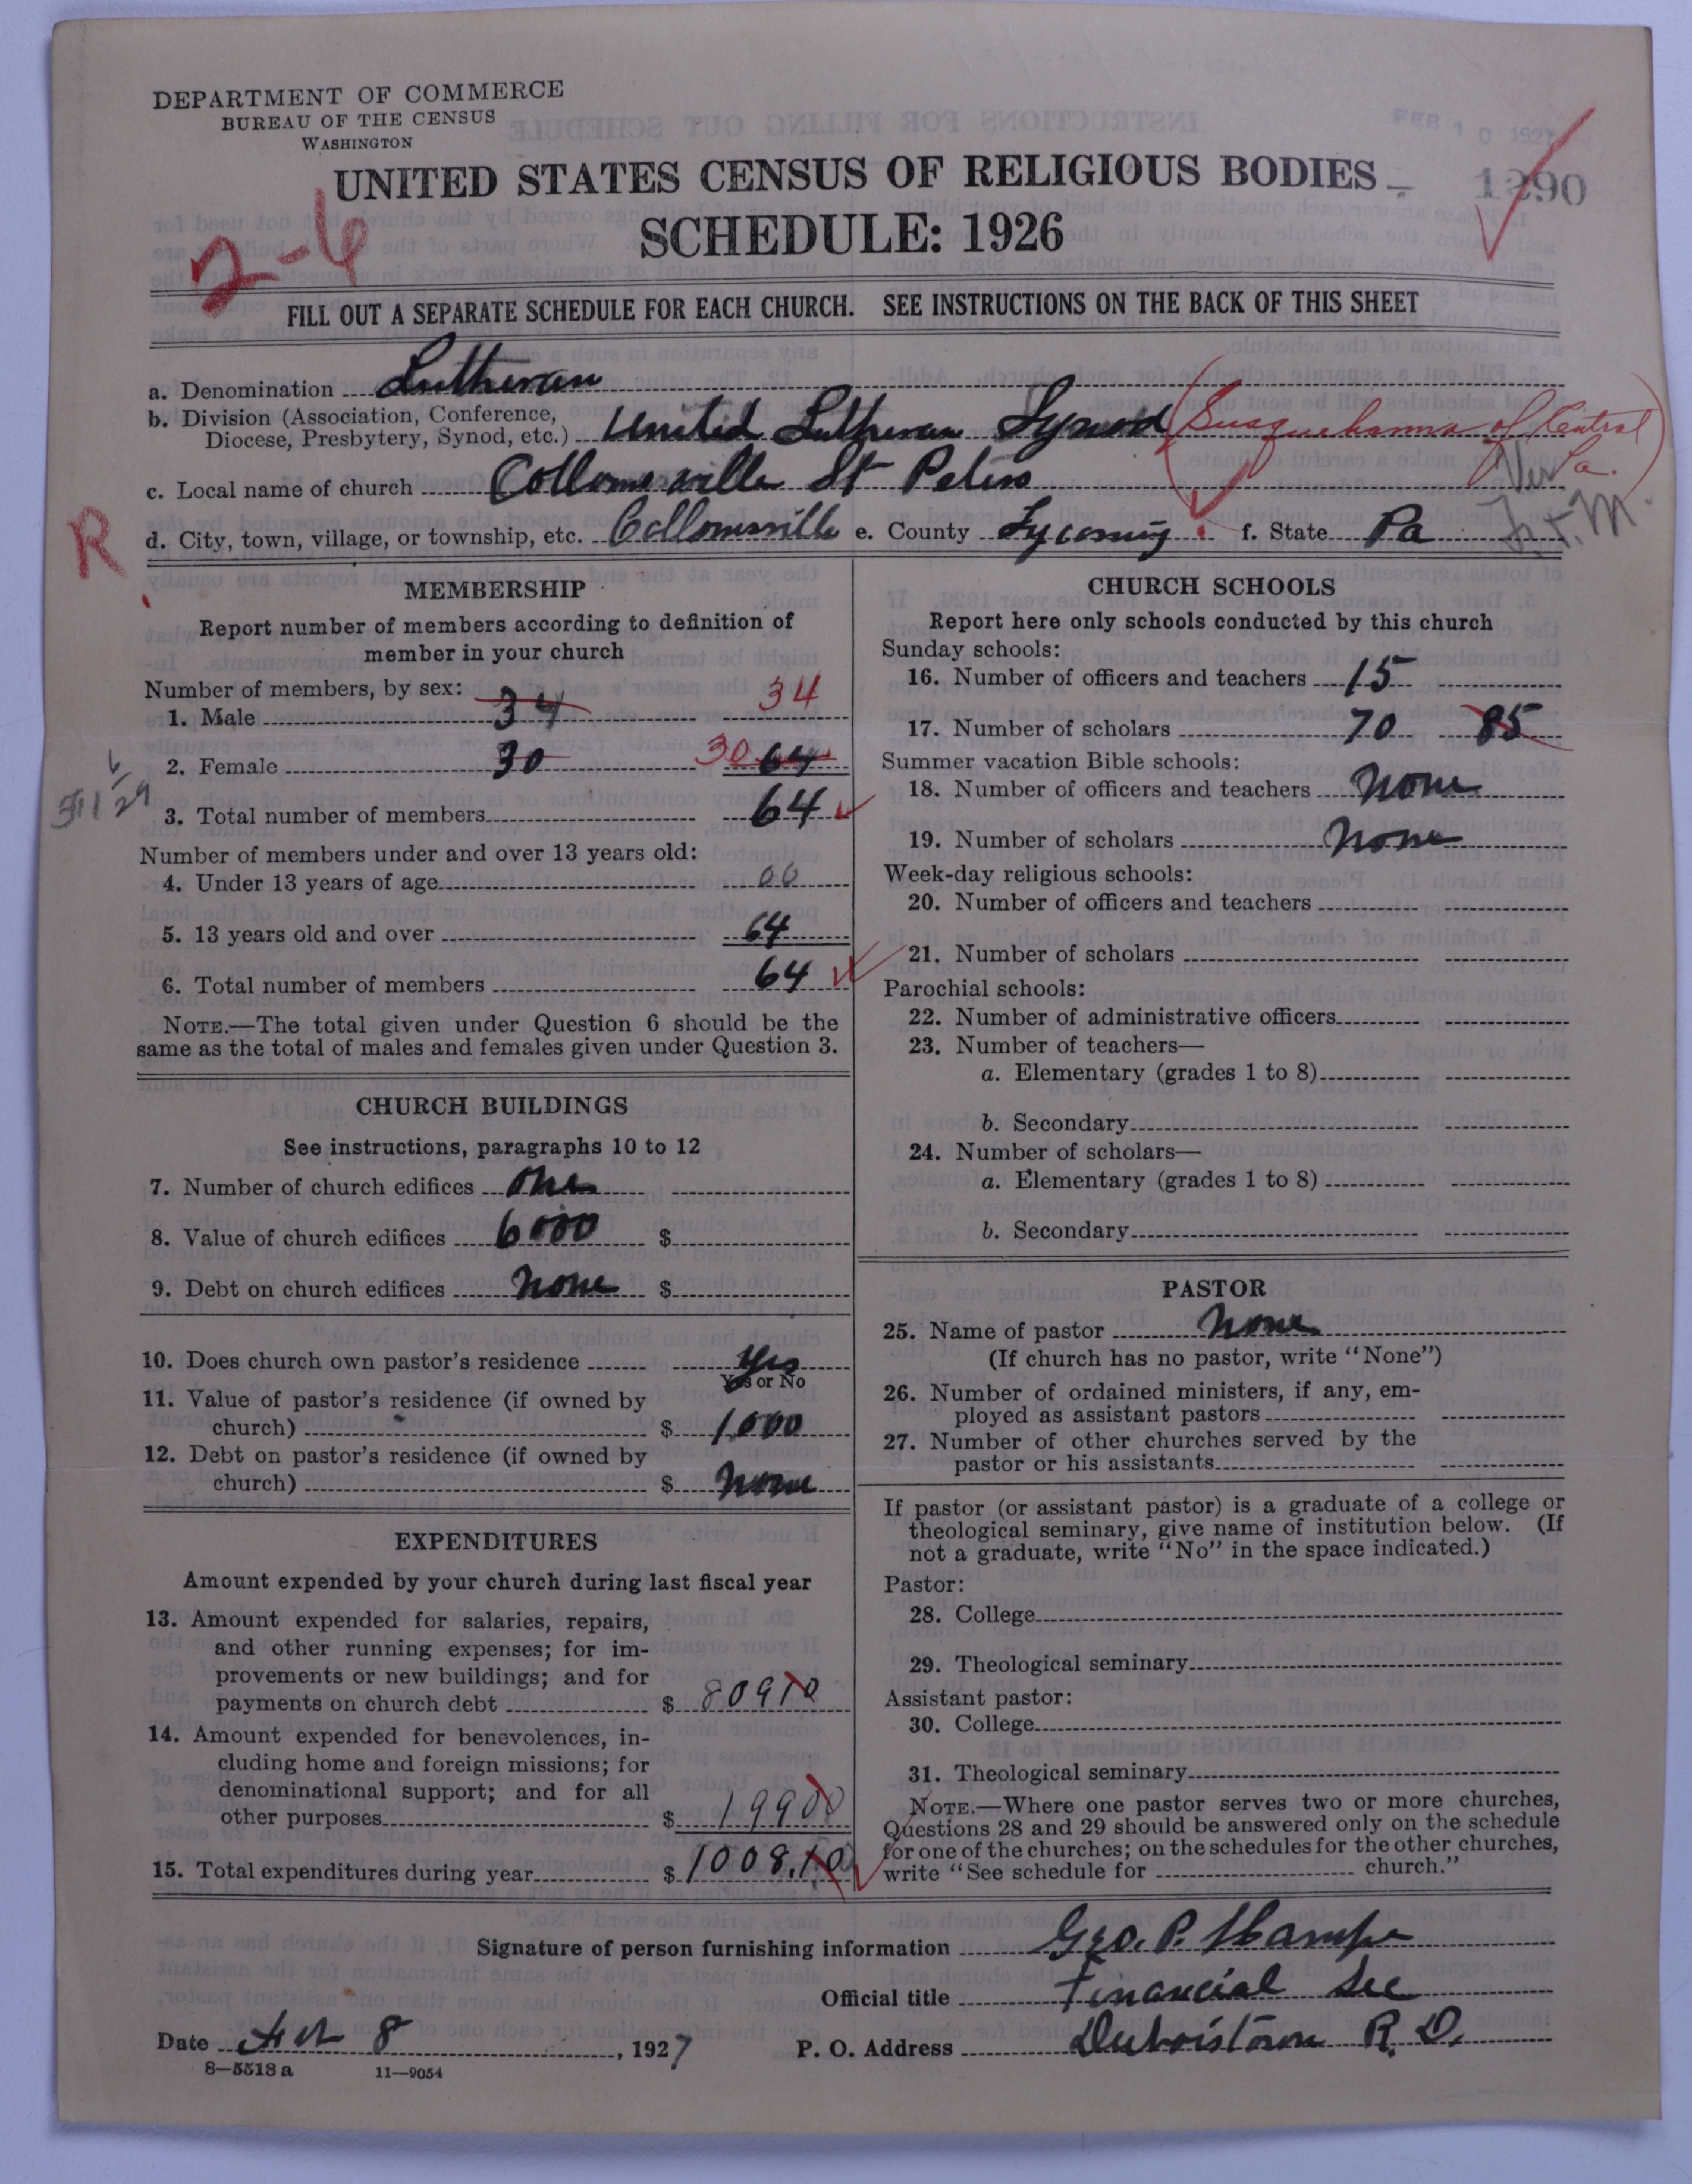 DEPARTMENT OF COMMERCE
BUREAU OF THE CENSUS
WASHINGTON
FEB 10 1927
UNITED STATES CENSUS OF RELIGIOUS BODIES
1290
SCHEDULE: 1926
2-6
FILL OUT A SEPARATE SCHEDULE FOR EACH CHURCH. SEE INSTRUCTIONS ON THE BACK OF THIS SHEET
a. Denomination Lutheran
b. Division (Association, Conference, Diocese, Presbytery, Synod, etc.) United Lutheran Synod (Susquehanna of Central Pa.)
c. Local name of church Collomsville St Peters
R
d. City, town, village, or township, etc. Collomsville e. County Lycoming f. State Pa
MEMBERSHIP
Report number of members according to definition of
member in your church
Number of members, by sex:
1. Male 34 34
2. Female 30 30 64
3. Total number of members 64
Number of members under and over 13 years old:
4. Under 13 years of age 00
5. 13 years old and over 64
6. Total number of members 64
NOTE.—The total given under Question 6 should be the
same as the total of males and females given under Question 3.
CHURCH BUILDINGS
See instructions, paragraphs 10 to 12
7. Number of church edifices one
8. Value of church edifices 6000 $
9. Debt on church edifices none $
10. Does church own pastor's residence yes
Yes or No
11. Value of pastor's residence (if owned by
church) $ 1,000
12. Debt on pastor's residence (if owned by
church) $ none
EXPENDITURES
Amount expended by your church during last fiscal year
13. Amount expended for salaries, repairs,
and other running expenses; for im-
provements or new buildings; and for
payments on church debt $ 80910
14. Amount expended for benevolences, in-
cluding home and foreign missions; for
denominational support; and for all
other purposes $ 19900
15. Total expenditures during year $ 1008.10
CHURCH SCHOOLS
Report here only schools conducted by this church
Sunday schools:
16. Number of officers and teachers 15
17. Number of scholars 70 85
Summer vacation Bible schools:
18. Number of officers and teachers none
19. Number of scholars none
Week-day religious schools:
20. Number of officers and teachers
21. Number of scholars
Parochial schools:
22. Number of administrative officers
23. Number of teachers—
a. Elementary (grades 1 to 8)
b. Secondary
24. Number of scholars—
a. Elementary (grades 1 to 8)
b. Secondary
PASTOR
25. Name of pastor none
(If church has no pastor, write "None")
26. Number of ordained ministers, if any, em-
ployed as assistant pastors
27. Number of other churches served by the
pastor or his assistants
If pastor (or assistant pastor) is a graduate of a college or
theological seminary, give name of institution below. (If
not a graduate, write "No" in the space indicated.)
Pastor:
28. College
29. Theological seminary
Assistant pastor:
30. College
31. Theological seminary
NOTE.—Where one pastor serves two or more churches,
Questions 28 and 29 should be answered only on the schedule
for one of the churches; on the schedules for the other churches,
write "See schedule for church."
Signature of person furnishing information Geo. P.
Official title Financial Sec
Date 8, 1927 P. O. Address Duboistown R. D.
8—5518 a 11—9054